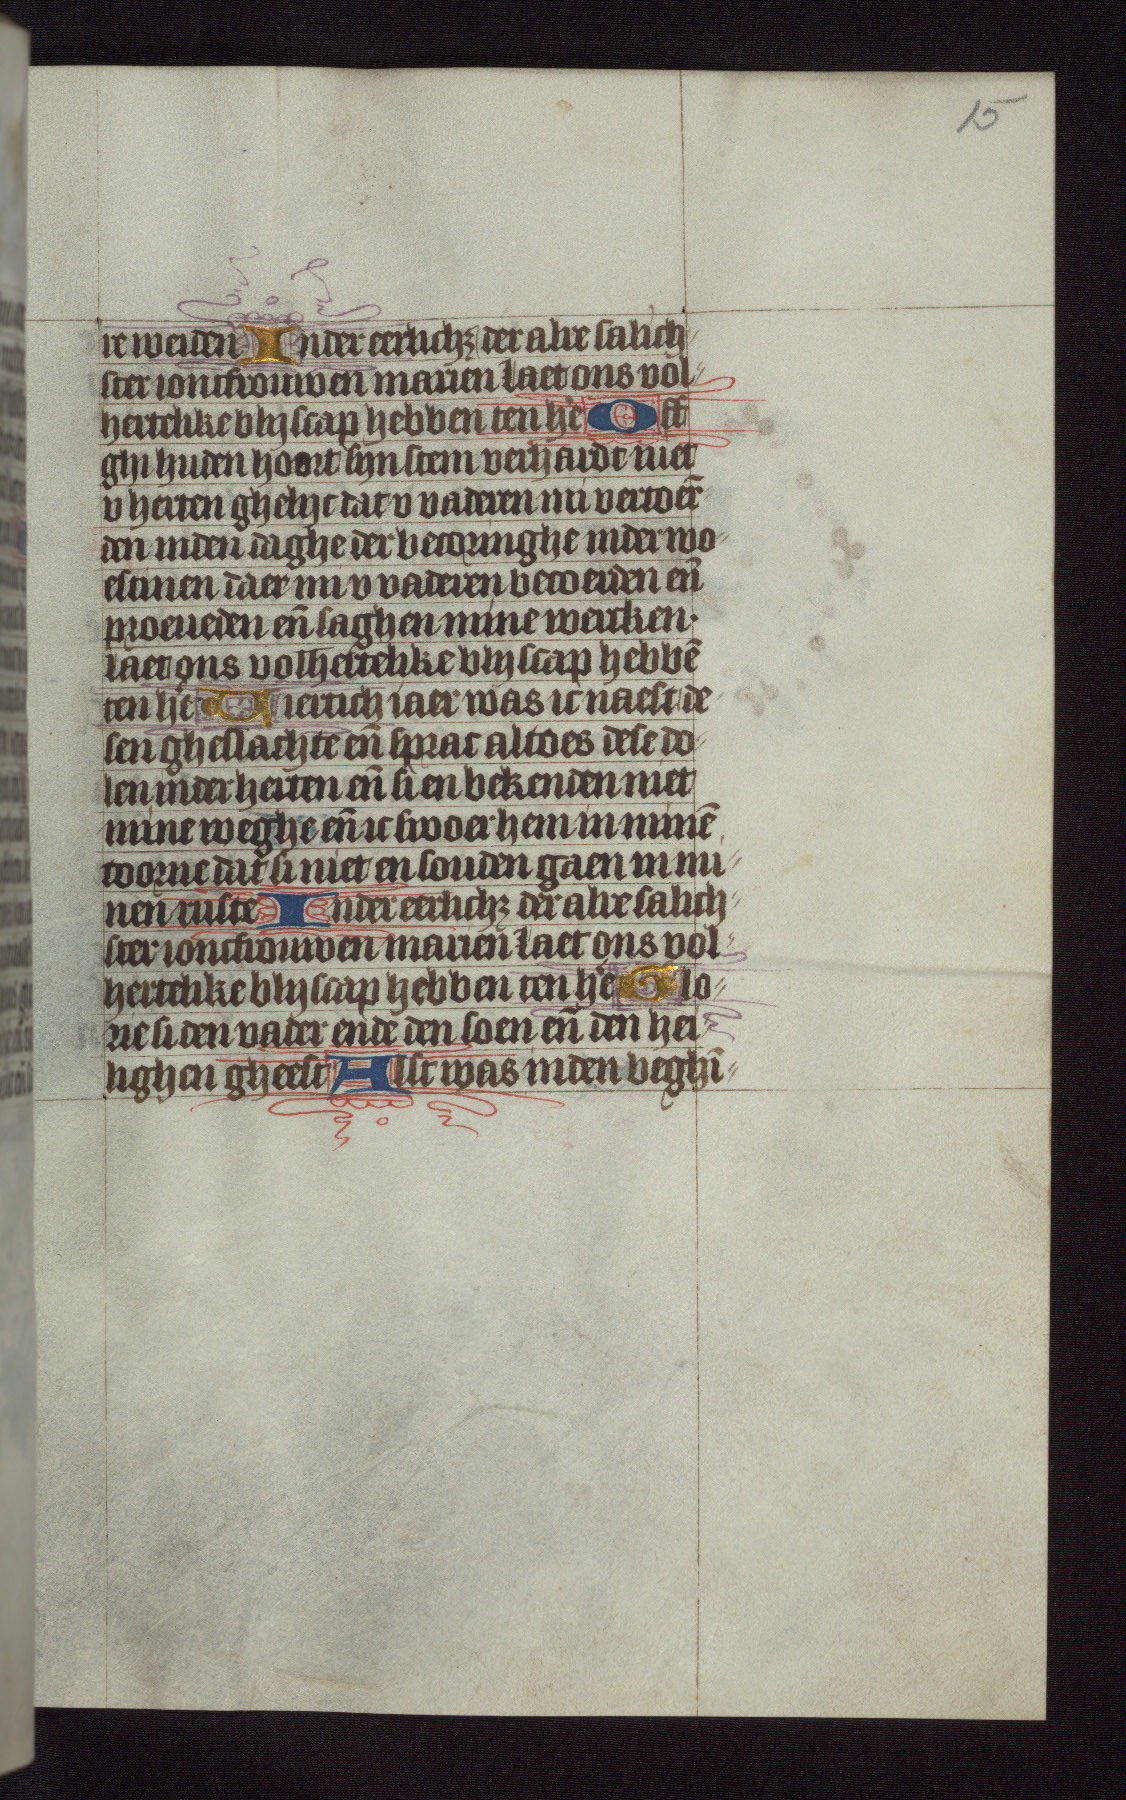 15
re werden Inder eerlichz der alre salich
ster ioncfrouwen marien laet ons vol
hertelike bliscap hebben ten he Off
ghi huden hoort syn stem verhardt niet
v herten ghelyc dat v vaderen mi vertoer̄
den inden daghe der becoringhe inder wo
estinen daer mi v vaderen becoerden en̄
proeueden en̄ saghen mine wercken·
laet ons volhertelike bliscap hebbē
ten he Viertich iaer was ic naest de
sen gheslachte en̄ sprac altoes dese do
len inder herten en̄ si en bekenden niet
mine weghe en̄ ic swoer hem in minē
toorne dat si niet en souden gaen in mi
nen ruste Inder eerlichz der alre salich
ster ioncfrouwen marien laet ons vol
hertelike bliscap hebben ten he Glo
rie si den vader ende den soen en̄ den hei
lighen gheest Alst was inden beghī